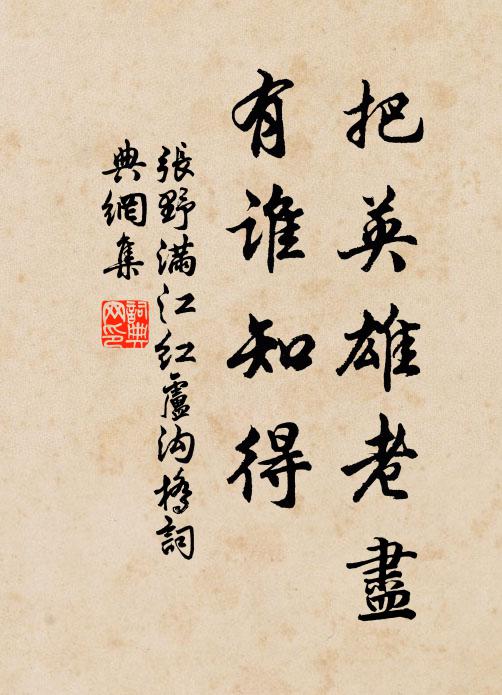 把英雄老盡
有誰知得
張野滿江紅盧沟橋詞
典網集
詞典
网印